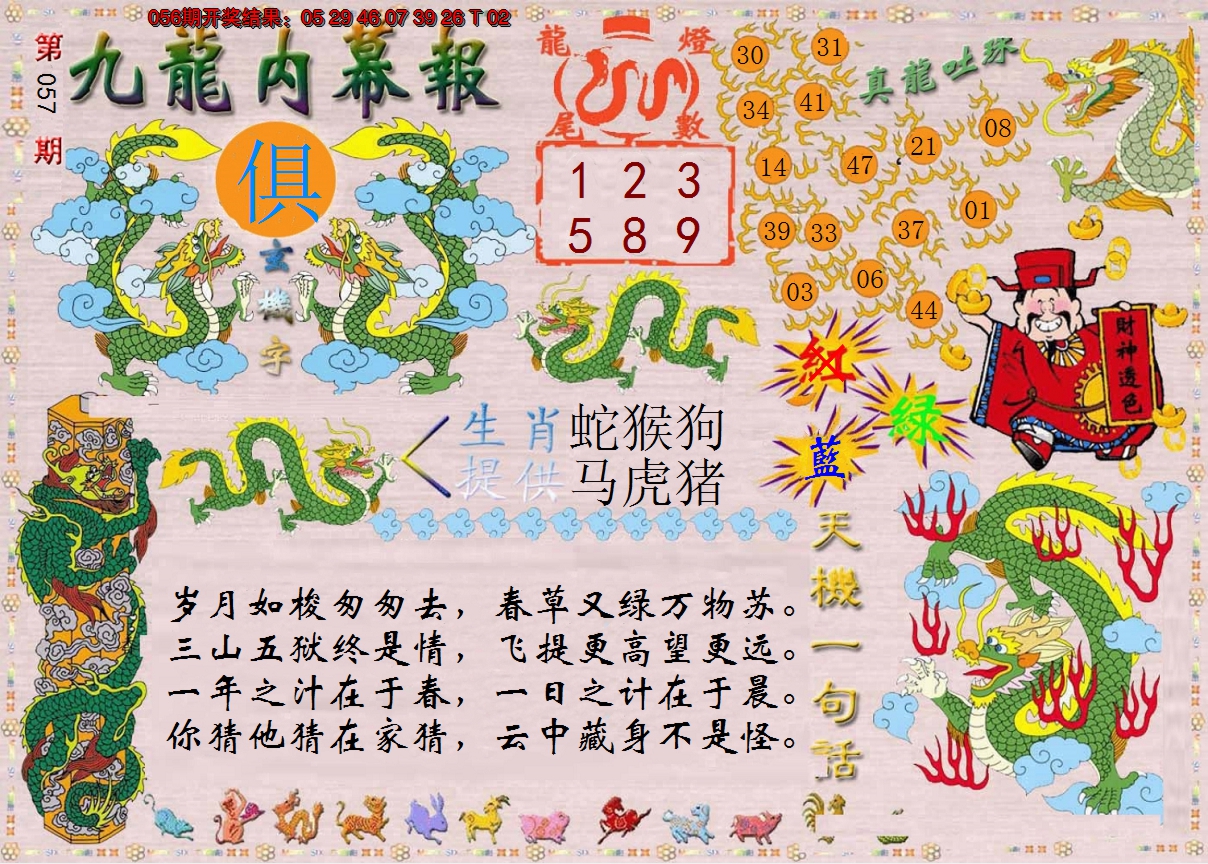 056期开奖结果：05 29 46 07 39 26 T 02
第057期
九龍内幕報
俱
玄機字
龍燈
尾數
1 2 3
5 8 9
真龍吐珠
30
31
34
41
08
21
14
47
01
39
33
37
06
03
44
財神透色
紅
绿
藍
生肖 蛇猴狗
提供 马虎猪
天機一句話
岁月如梭匆匆去，春草又绿万物苏。
三山五狱终是情，飞提更高望更远。
一年之汁在于春，一日之计在于晨。
你猜他猜在家猜，云中藏身不是怪。